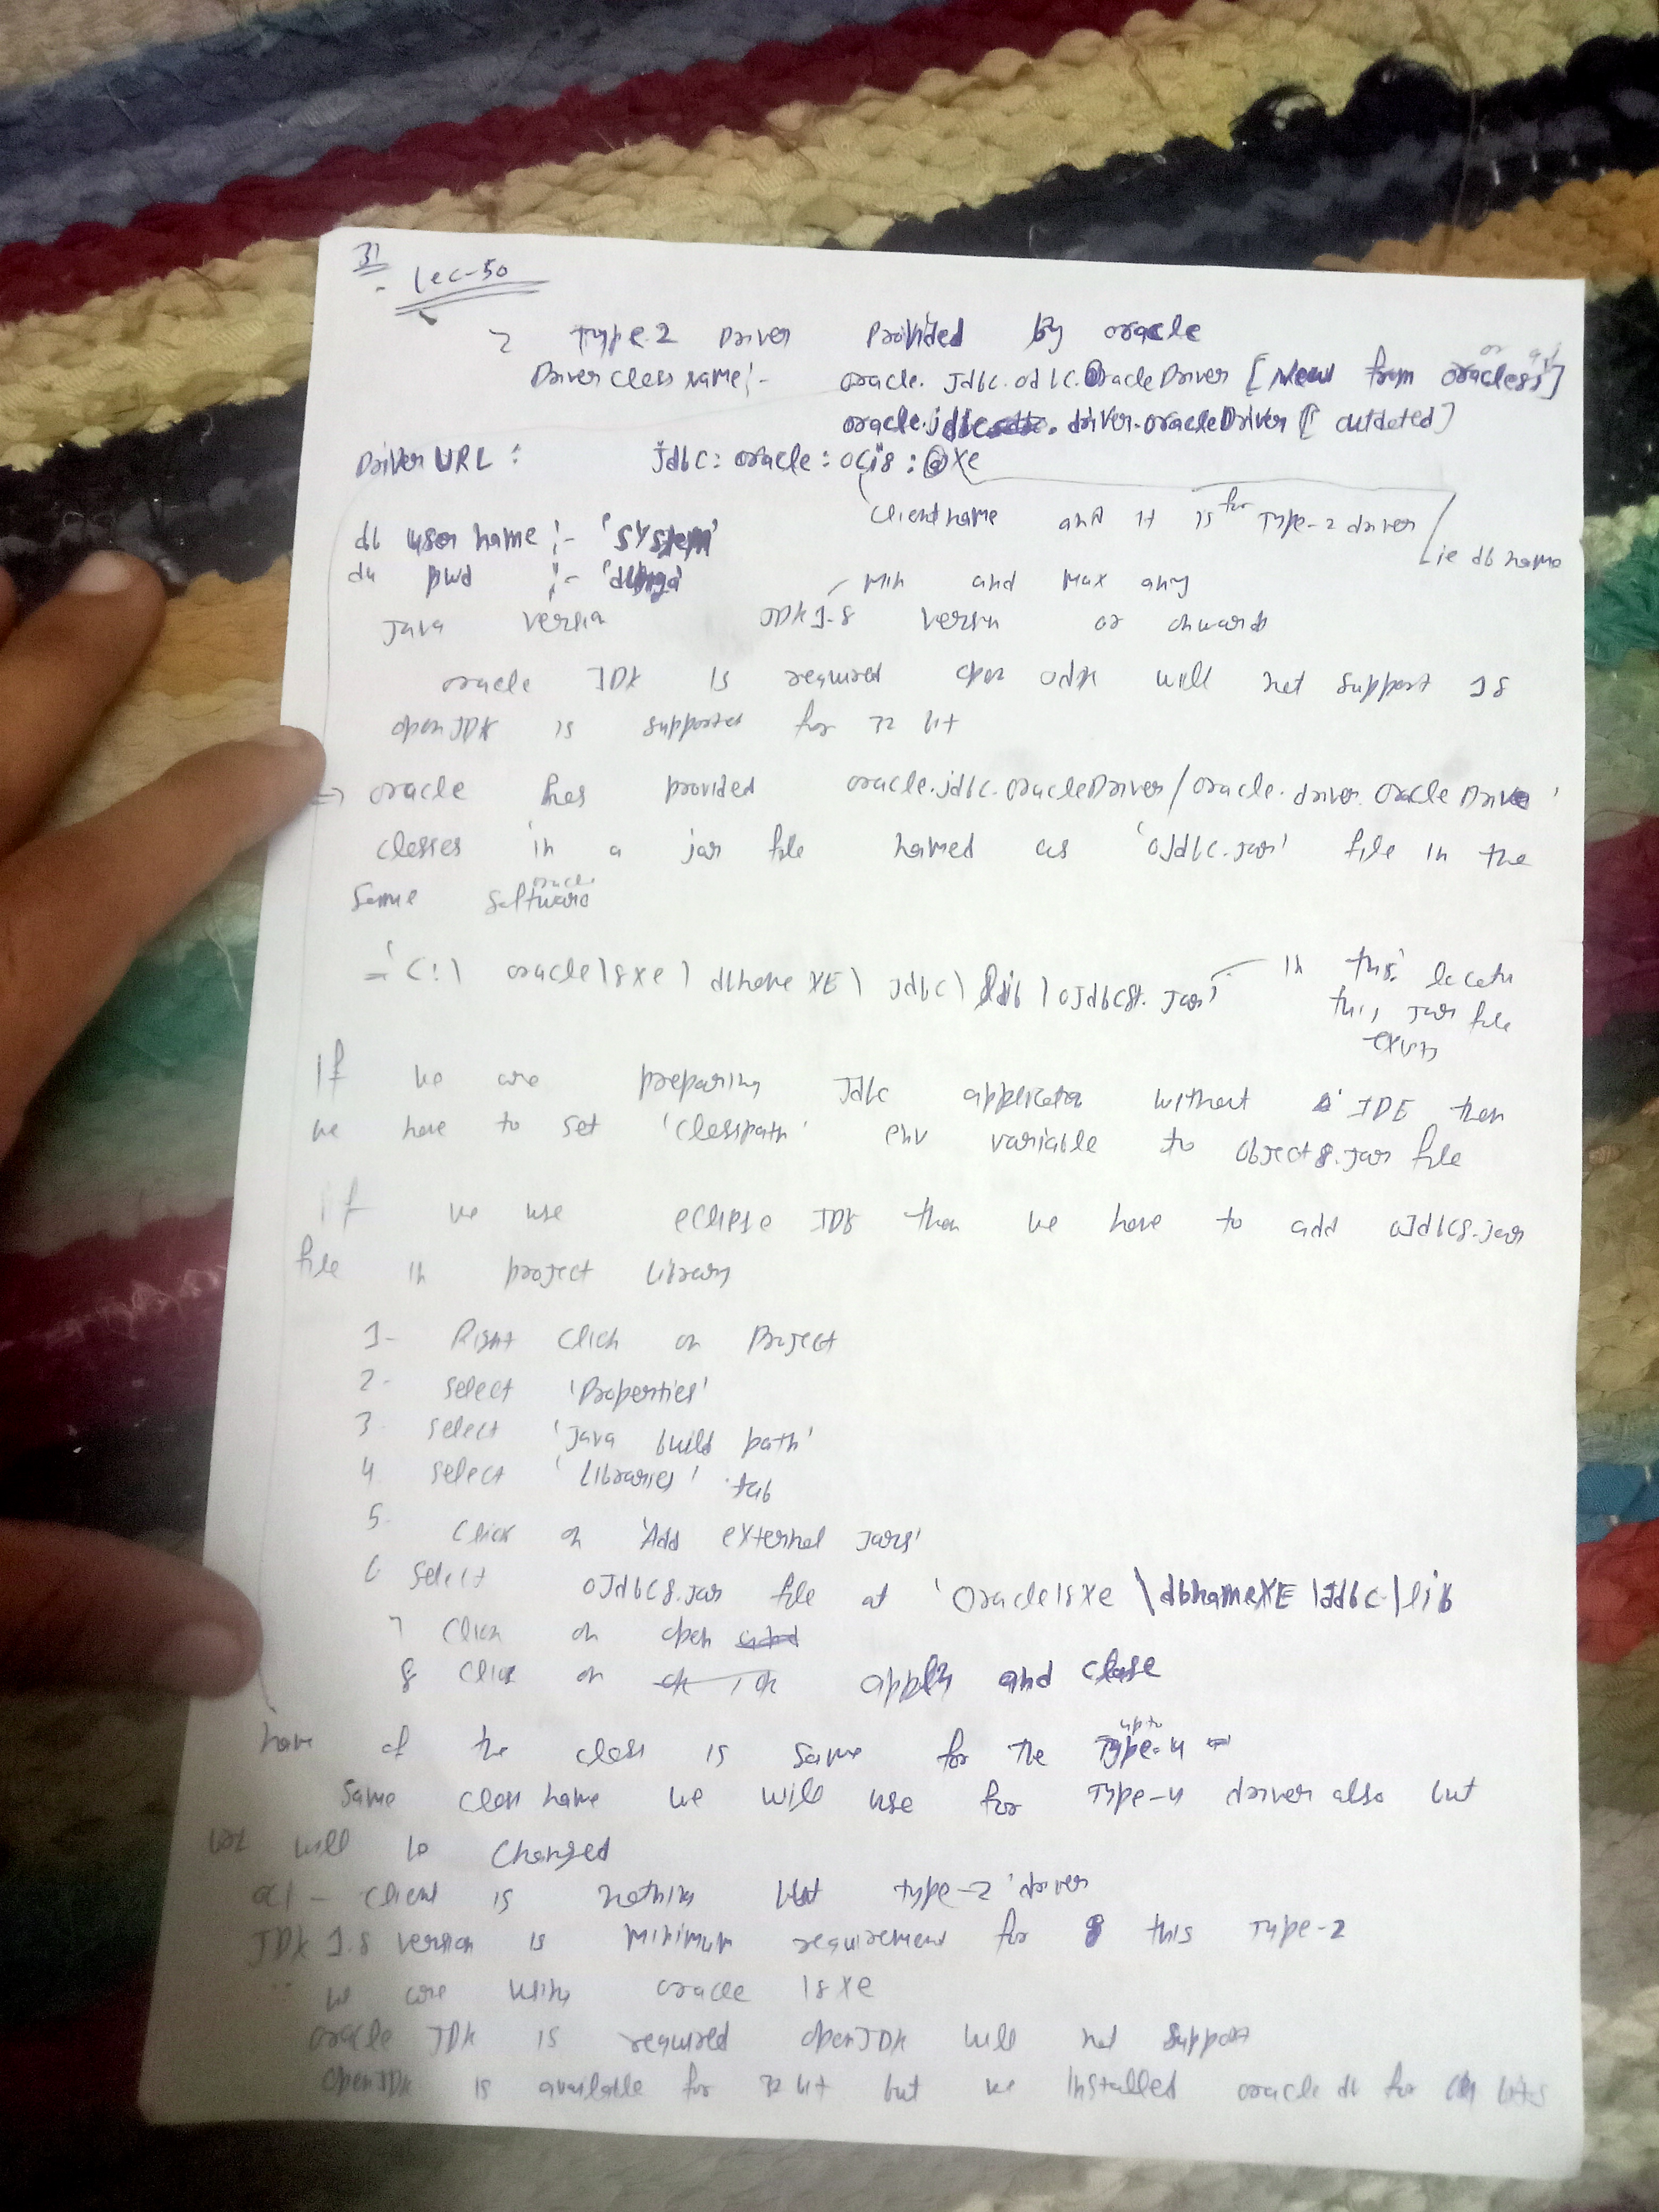 31
Lec-50
Type-2 Driver Provided by oracle
Driver class Name :- oracle. Jdbc. OracleDriver [New from oracle
oracle.jdbc. driver. oracleDriver [outdated]
Driver URL : Jdbc: oracle : oci8 : @xe
client name and it is for Type-2 driver
ie db name
db user name :- 'system'
db pwd :- 'durga'
Min and Max any
Java version JDK 1.8 version or onwards
oracle JDK is required open will not support 18
openJDK is supported for 32 bit
=> oracle has provided oracle.jdbc.OracleDriver/oracle.driver.OracleDriver
classes in a jar file named as 'oJdbc.jar' file in the
same oracle software
= 'C:\ oracle18xe \ dbhomeXE \ Jdbc \ lib \ oJdbc8.jar'
in this location
this Jar file
exists
If we are preparing Jdbc application without IDE then
we have to set 'classpath' env variable to object8.jar file
if we use eclipse IDE then we have to add oJdbc8.jar
file in project library
1- Right click on Project
2- select 'Properties'
3- select 'Java build path'
4 select 'Libraries' tab
5- Click on 'Add external Jars'
6 Select oJdbc8.jar file at 'Oracle18xe \dbhomeXE \Jdbc \lib
7 Click on open
8 Click on apply and close
name of the class is same for the upto Type-4
same class name we will use for Type-4 driver also but
url will be changed
oci - client is nothing but type-2 driver
JDK 1.8 version is minimum requirement for this Type-2
we are using oracle 18xe
oracle JDK is required openJDK will not support
openJDK is available for 32 bit but we installed oracle db for bits